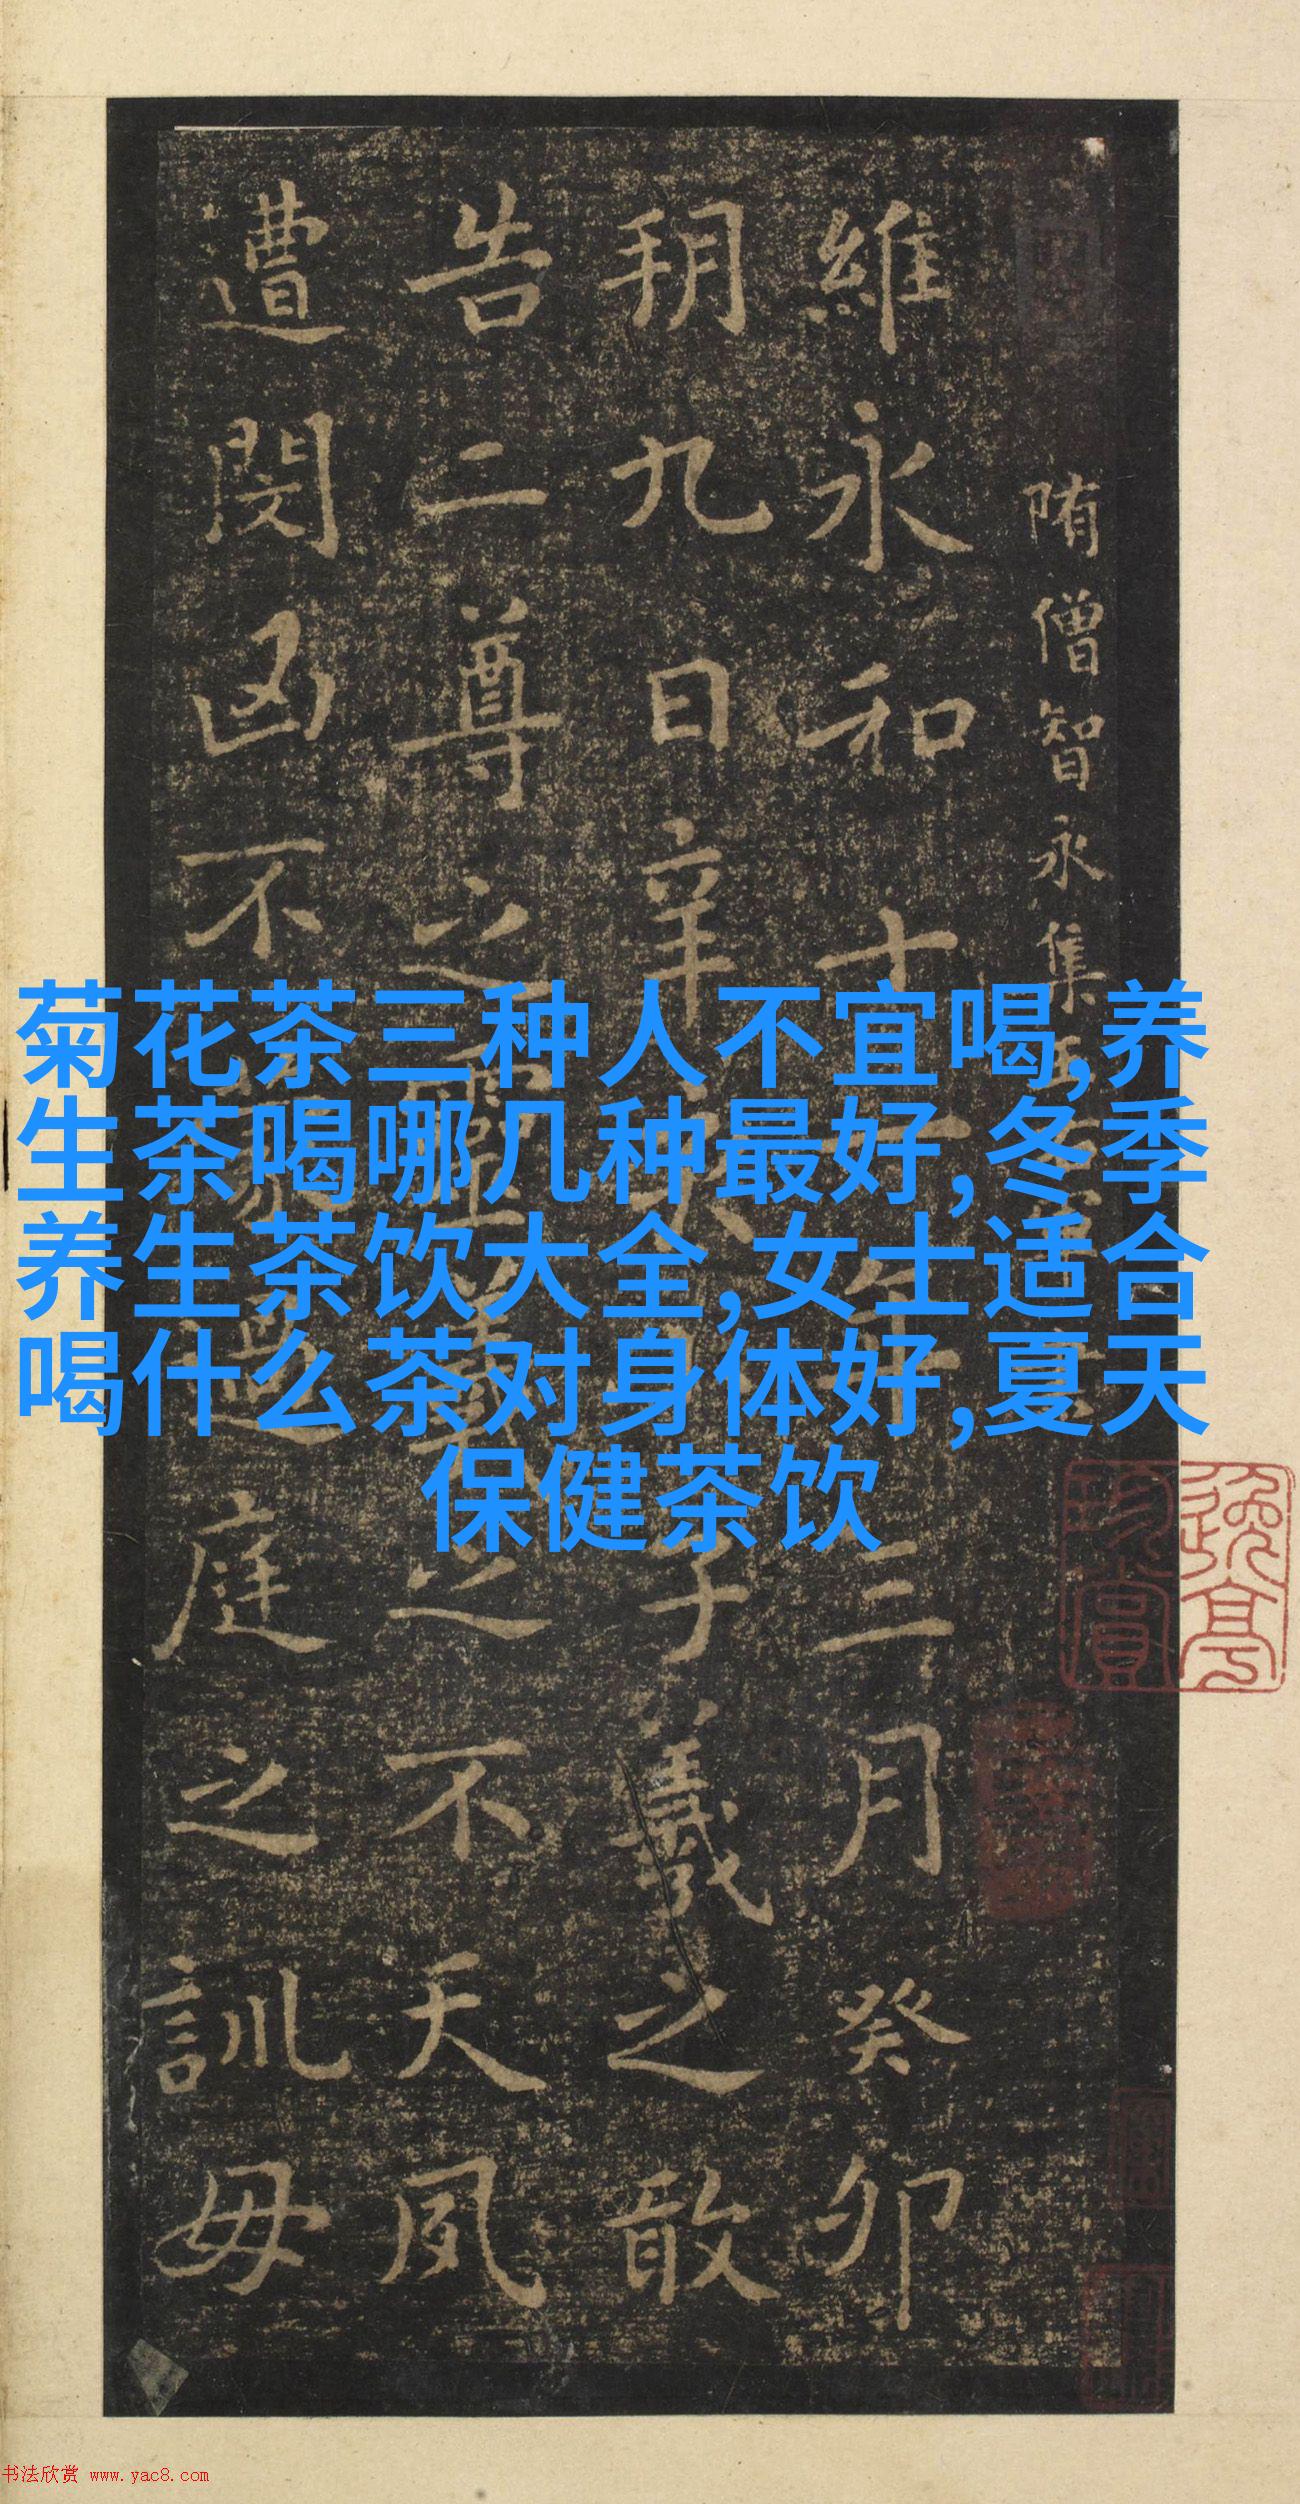 隋僧智永集
維永和十一年三月癸卯
朔九日辛
子羲之敢
告二尊之靈羲之不天夙
遭閔凶不蒙過庭之訓毋
菊花茶三种人不宜喝,养
生茶喝哪几种最好,冬季
养生茶饮大全,女士适合
喝什么茶对身体好,夏天
保健茶饮
书法欣赏 www.yac8.com